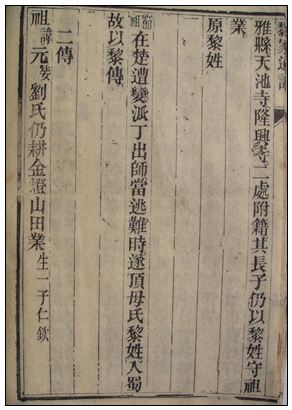 雅縣天池寺隆興寺二處附籍其長子仍以黎姓守祖
業
原黎姓
節祖在楚遭變派丁出師當逃難時遂頂母氏黎姓入蜀
故以黎傳
二傳
祖諱元妻劉氏仍耕金燈山田業生一子仁欽